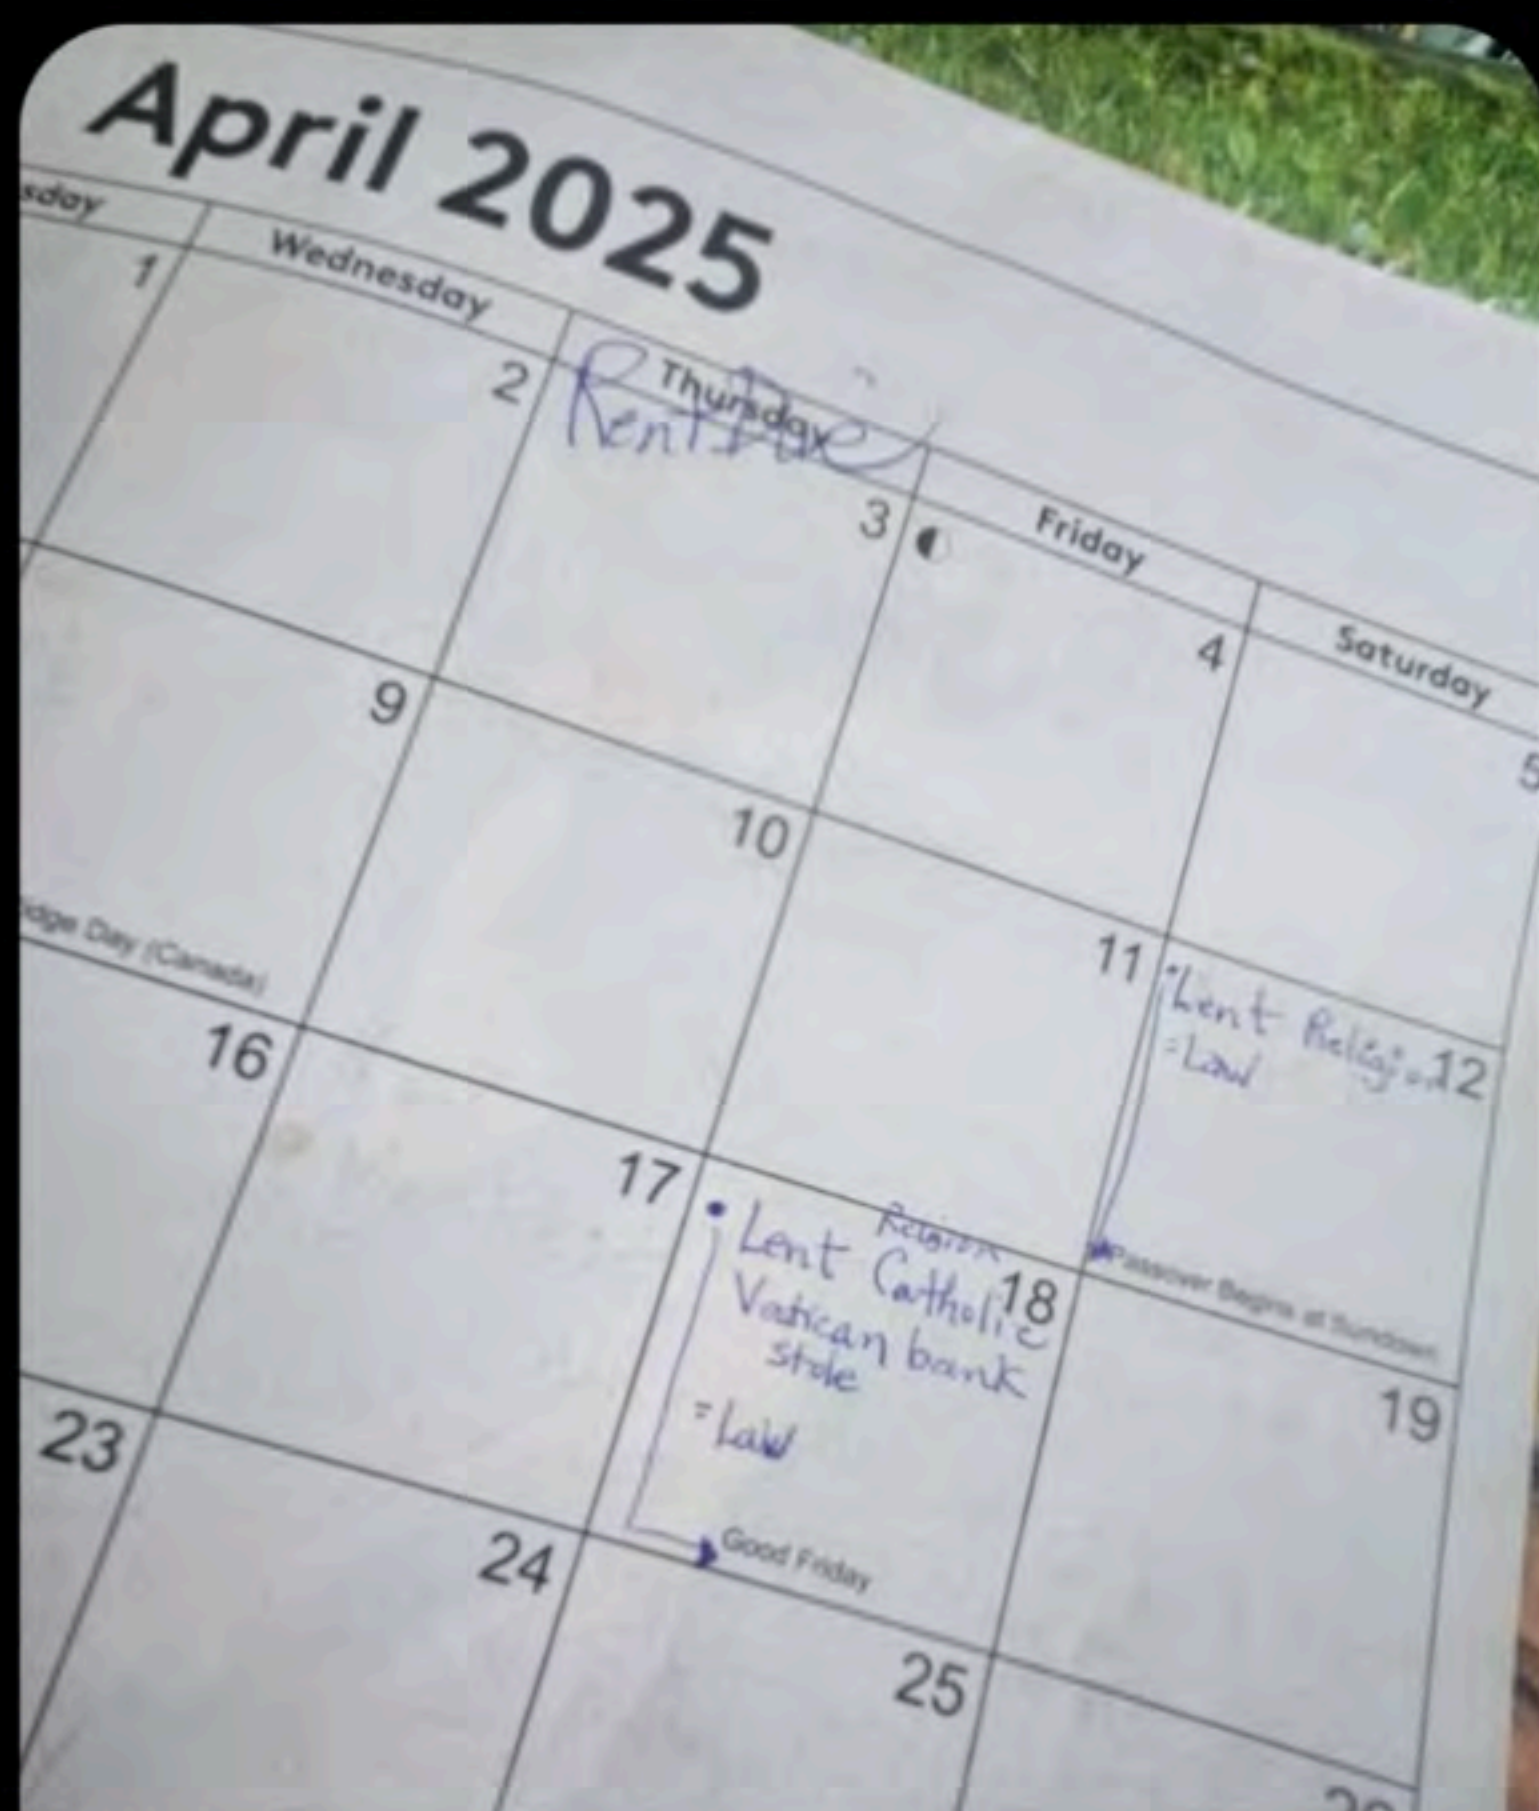 April 2025
sday
Wednesday
Thursday
Friday
Saturday
Rent Due
1
2
3
4
5
9
10
11
12
• Lent Religion
= Law
Passover Begins at Sundown
idge Day (Canada)
16
17
18
19
Religion
• Lent Catholic
Vatican bank
stole
= Law
Good Friday
23
24
25